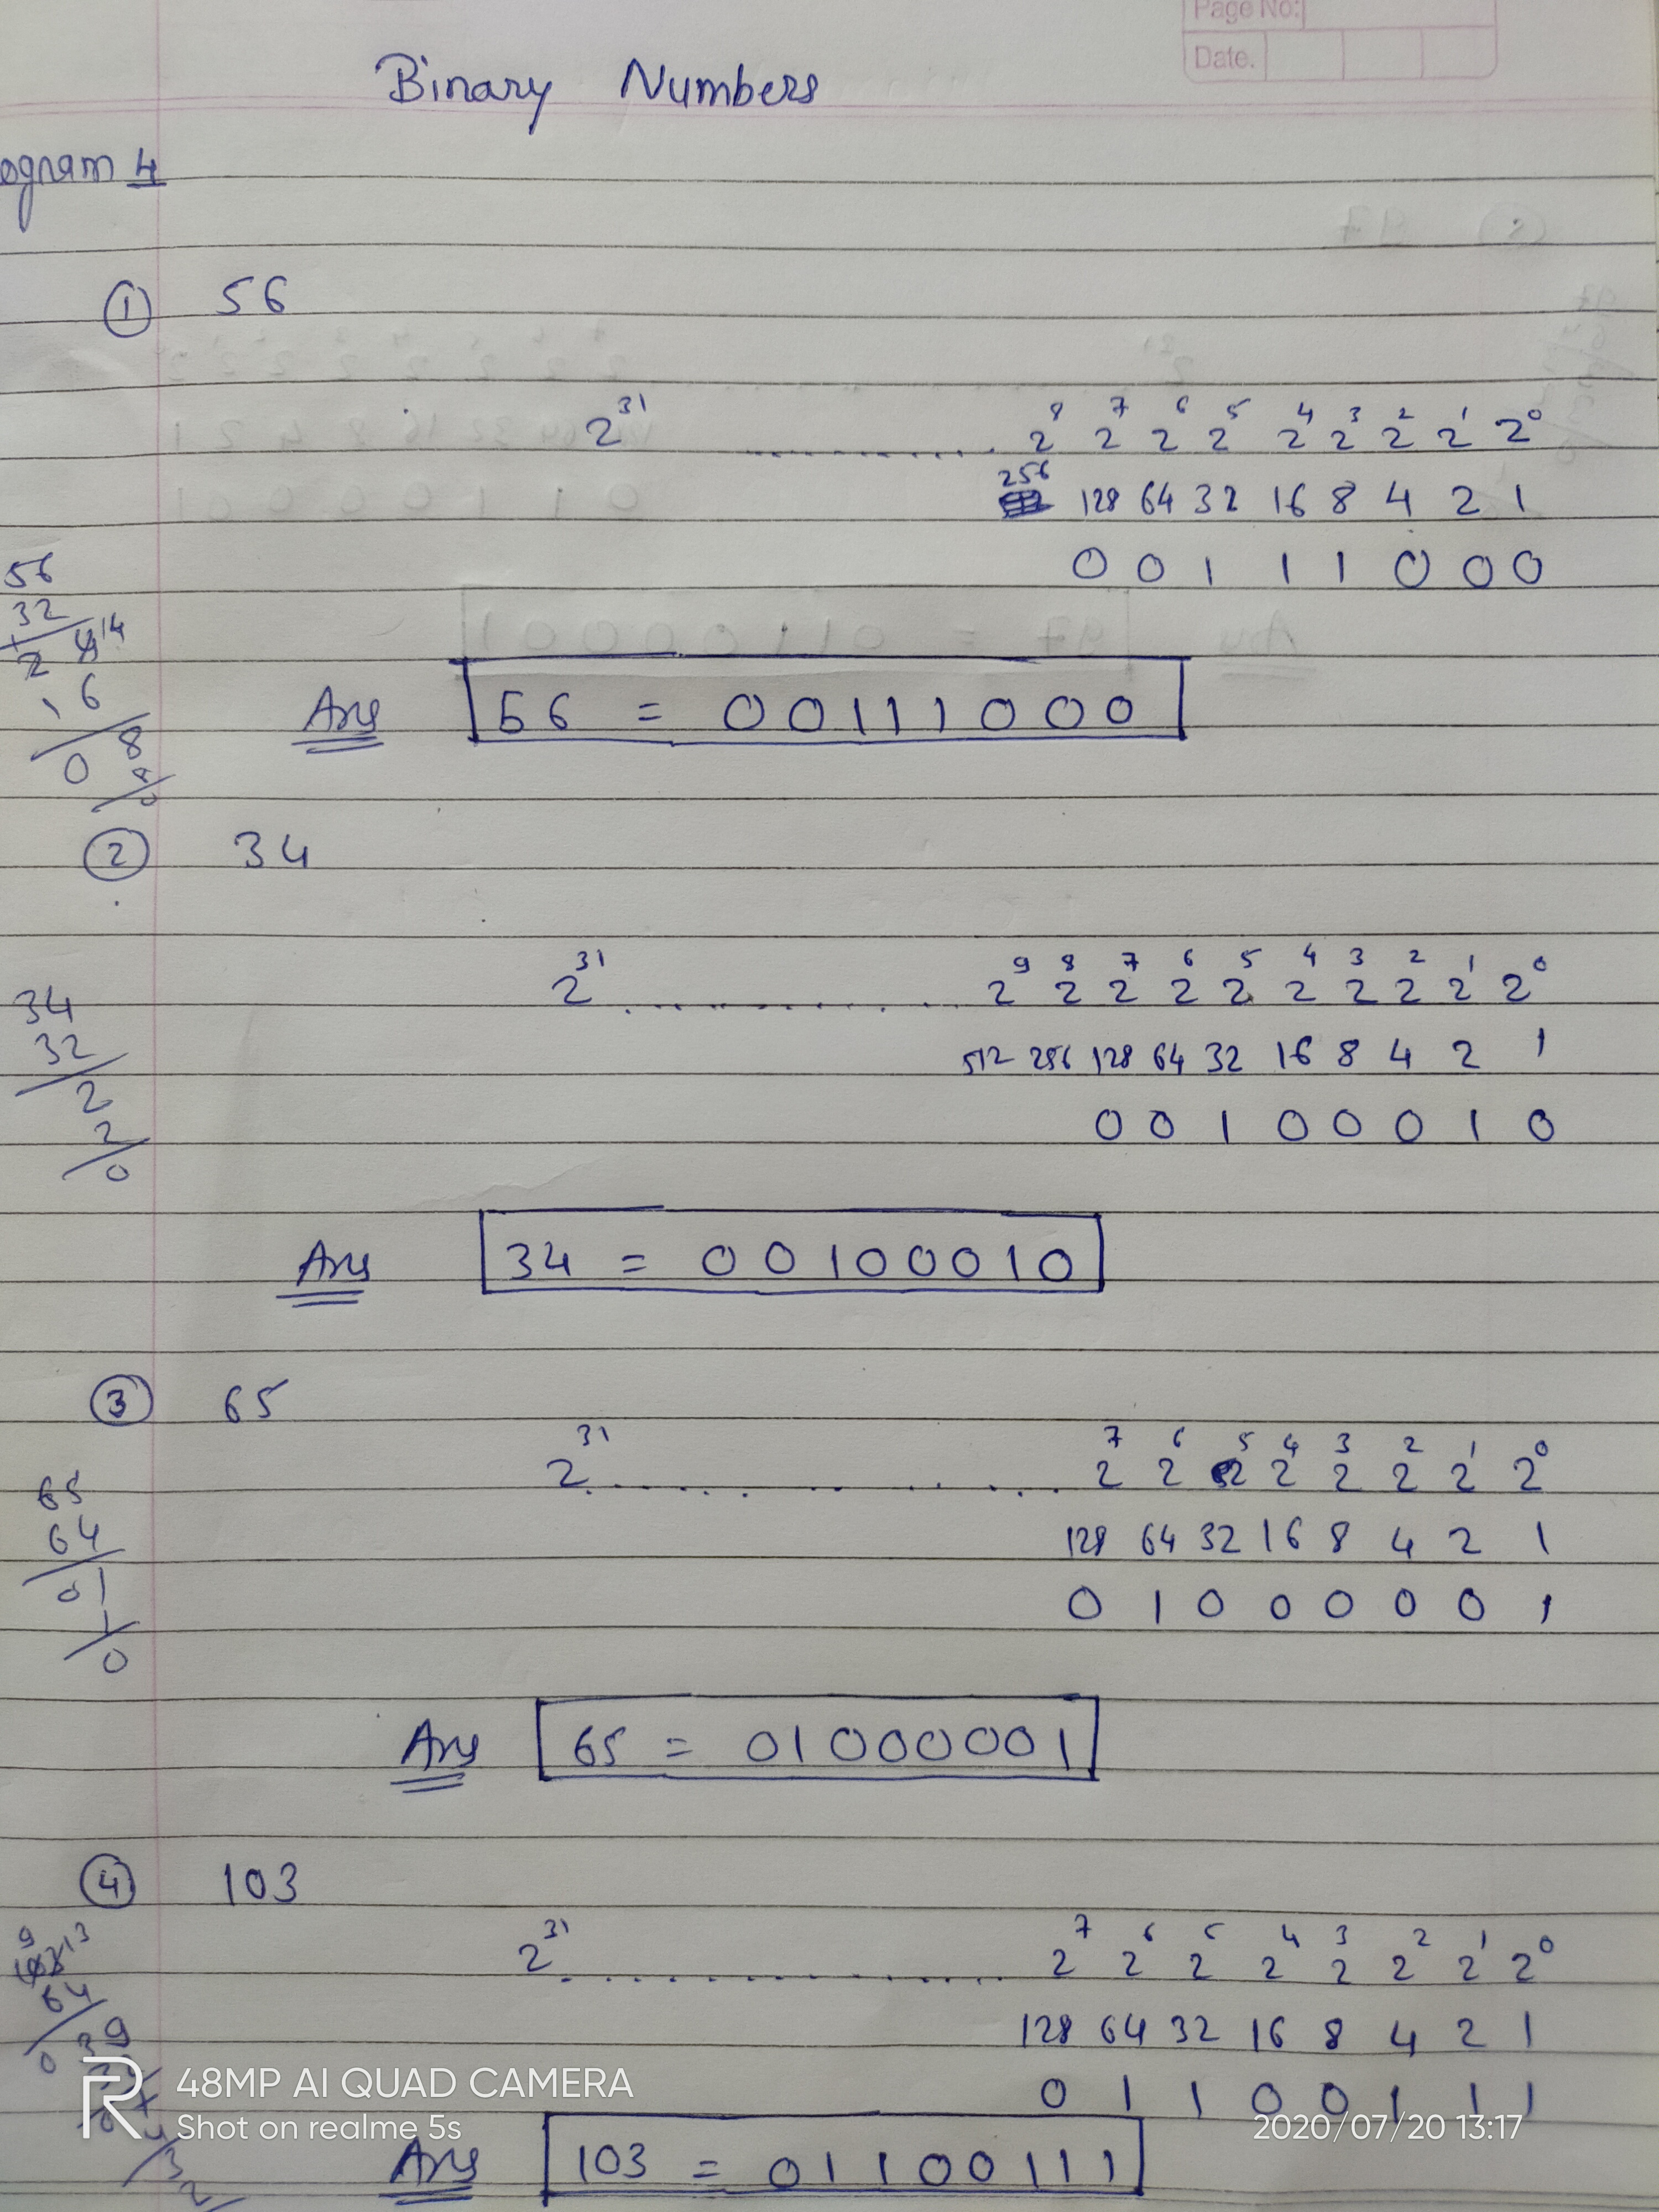 Page No:
Date.
Binary Numbers
ogram 4
① 56
2^31 .......... 2^8 2^7 2^6 2^5 2^4 2^3 2^2 2^1 2^0
256 128 64 32 16 8 4 2 1
0 0 1 1 1 0 0 0
56
32
2 4 14
16
0 8
8
0
Ans 56 = 00111000
② 34
2^31 .......... 2^9 2^8 2^7 2^6 2^5 2^4 2^3 2^2 2^1 2^0
512 256 128 64 32 16 8 4 2 1
0 0 1 0 0 0 1 0
34
32
2
2
0
Ans 34 = 00100010
③ 65
2^31 .......... 2^7 2^6 2^5 2^4 2^3 2^2 2^1 2^0
128 64 32 16 8 4 2 1
0 1 0 0 0 0 0 1
65
64
01
1
0
Ans 65 = 01000001
④ 103
2^31 .......... 2^7 2^6 2^5 2^4 2^3 2^2 2^1 2^0
128 64 32 16 8 4 2 1
0 1 1 0 0 1 1 1
64
0 39
3
2
Ans 103 = 01100111
48MP AI QUAD CAMERA
Shot on realme 5s
2020/07/20 13:17